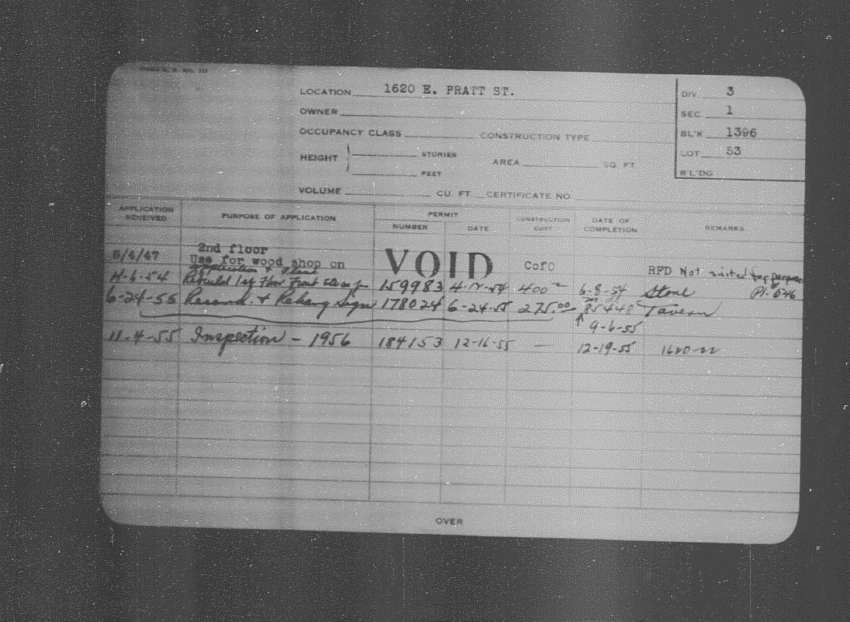 LOCATION 1620 E. PRATT ST.
DIV. 3
OWNER
SEC. 1
OCCUPANCY CLASS CONSTRUCTION TYPE
BL'K 1396
HEIGHT STORIES AREA SQ. FT.
LOT 53
FEET
B'L'DG
VOLUME CU. FT. CERTIFICATE NO.
APPLICATION RECEIVED PURPOSE OF APPLICATION PERMIT NUMBER DATE CONSTRUCTION COST DATE OF COMPLETION REMARKS
2nd floor
6/4/47 Use for wood shop on VOID CofO RFD Not
4-6-54 Rebuild 1st Floor Front 159983 400 6-8-54 Store
6-24-55 & Rehang Sign 178024 6-24-55 275.00 85448 Tavern
9-6-55
11-4-55 Inspection - 1956 184153 12-16-55 — 12-19-55 1620-22
OVER